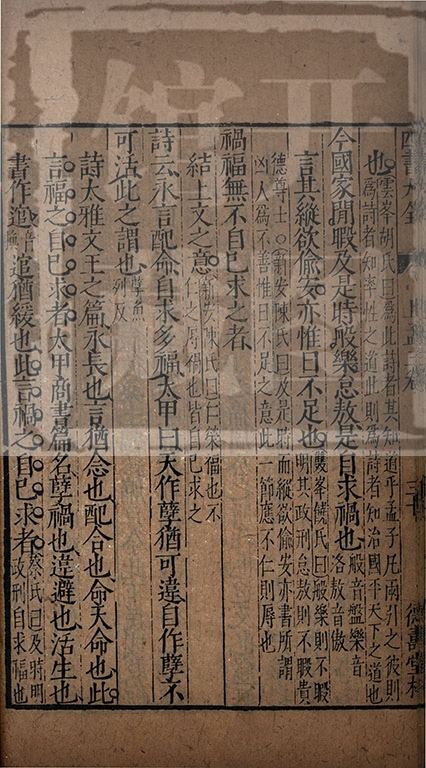 四書大全
德壽堂梓
也雲峯胡氏曰爲此詩者其知道乎孟子凡兩引之彼則
爲詩者知率性之道此則爲詩者知治國平天下之道也
今國家閒暇及是時般樂怠敖是自求禍也般音盤樂音
洛敖音傲
言其縱欲偷安亦惟日不足也雙峯饒氏曰般樂則不暇
明其政刑怠敖則不暇貴
德尊士○新安陳氏曰及是時而縱欲偷安亦書所謂
凶人爲不善惟日不足之意此一節應不仁則辱也
禍福無不自己求之者
結上文之意新安陳氏曰仁榮福也不
仁之辱禍也皆自己求之
詩云永言配命自求多福太甲曰天作孽猶可違自作孽不
可活此之謂也孽魚
列反
詩大雅文王之篇永長也言猶念也配合也命天命也此
言福之自己求者太甲商書篇名孽禍也違避也活生也
書作逭音
逭猶緩也此言禍之自己求者蔡氏曰及時明
政刑自求福也